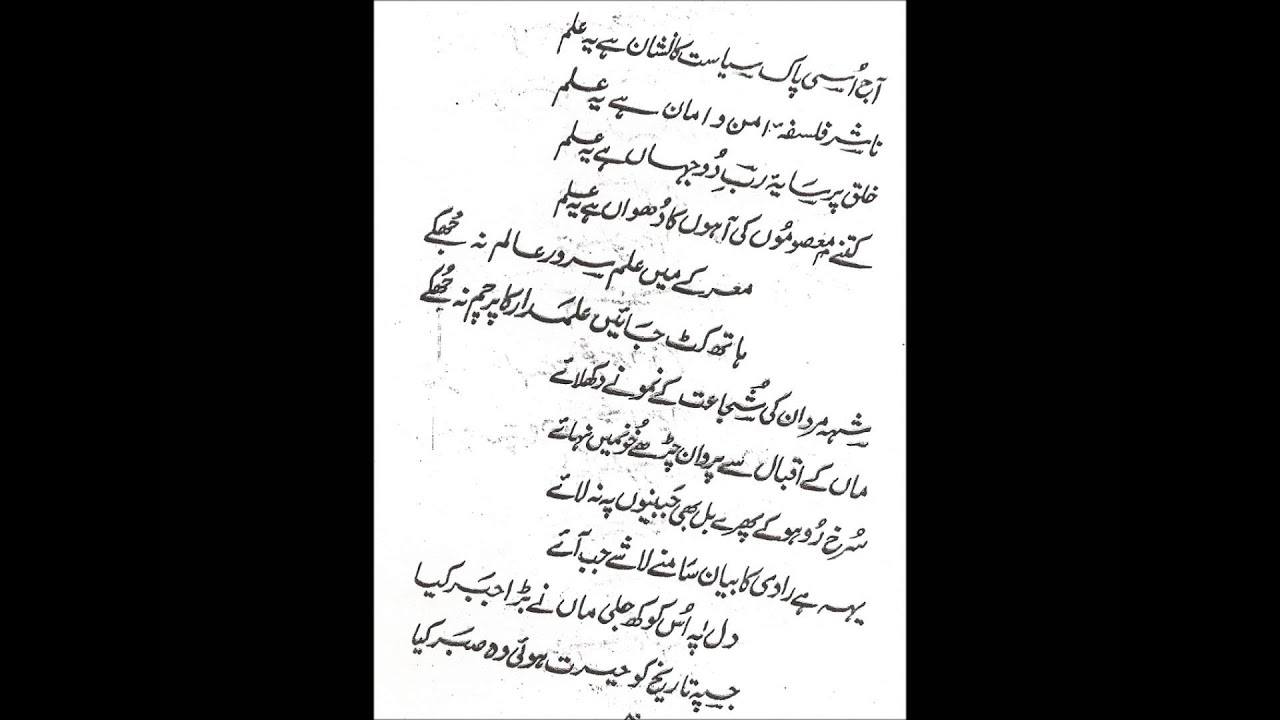 آج اُسی پاک سیاست کا نشان ہے یہ علم
ناشرِ فلسفۂ امن و امان ہے یہ علم
خلق پر سایۂ ربِّ دُوجہاں ہے یہ علم
کتنے معصوموں کی آہوں کا دُھواں ہے یہ علم
معرکے میں علم سرورِ عالم نہ جُھکے
ہاتھ کٹ جائیں علمدار کا پرچم نہ جُھکے
شہہ مردان کی شُجاعت کے نمونے دکھلائے
ماں کے اقبال سے پروان چڑھے خُونمیں نہائے
سُرخ رُو ہو کے پھرے بل بھی جبینوں پہ نہ لائے
یہہ ہے راوی کا بیان سامنے لاشے جب آئے
دل پہ اُس کوکھ جلی ماں نے بڑا جبر کیا
جسپہ تاریخ کو حیرت ہوئی وہ صبر کیا